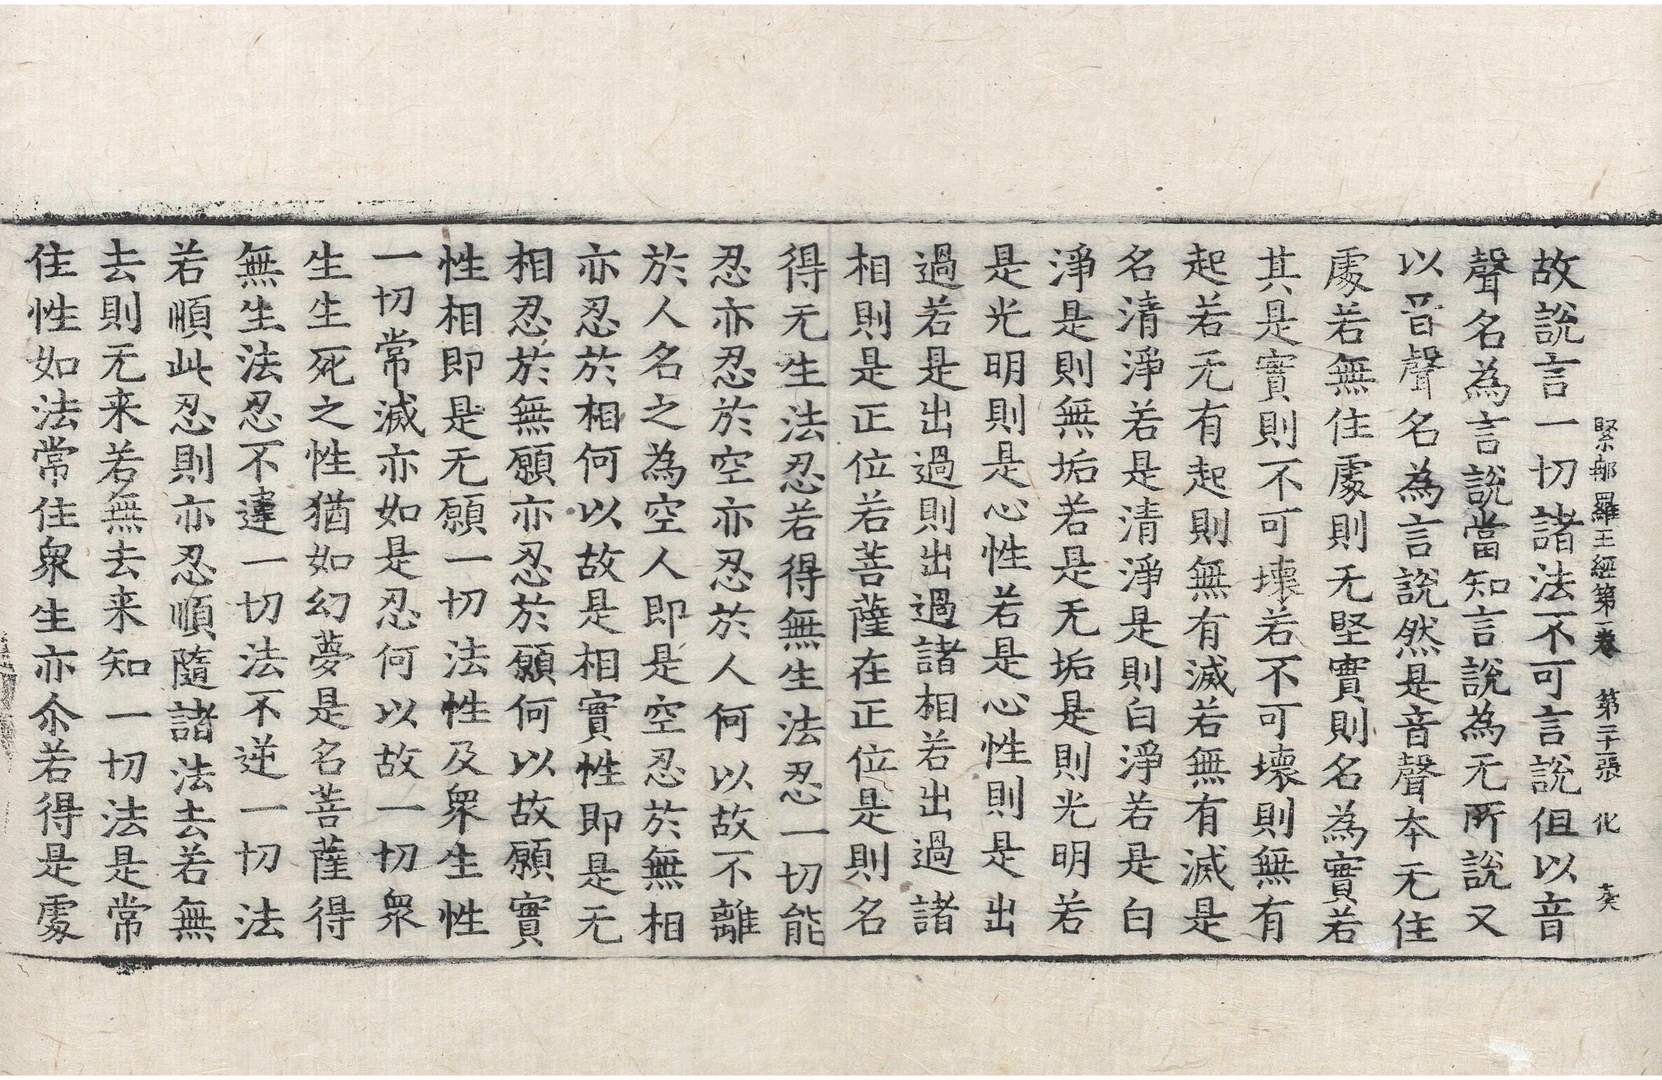 緊那羅王經第一卷 第二十張 化
故說言一切諸法不可言說但以音
聲名為言說當知言說為无所說又
以音聲名為言說然是音聲本无住
處若無住處則无堅實則名為實若
其是實則不可壞若不可壞則無有
起若无有起則無有滅若無有滅是
名清淨若是清淨是則白淨若是白
淨是則無垢若是无垢是則光明若
是光明則是心性若是心性則是出
過若是出過則出過諸相若出過諸
相則是正位若菩薩在正位是則名
得无生法忍若得無生法忍一切能
忍亦忍於空亦忍於人何以故不離
於人名之為空人即是空忍於無相
亦忍於相何以故是相實性即是无
相忍於無願亦忍於願何以故願實
性相即是无願一切法性及眾生性
一切常滅亦如是忍何以故一切眾
生生死之性猶如幻夢是名菩薩得
無生法忍不違一切法不逆一切法
若順此忍則亦忍順隨諸法去若無
去則无来若無去来知一切法是常
住性如法常住眾生亦尒若得是處